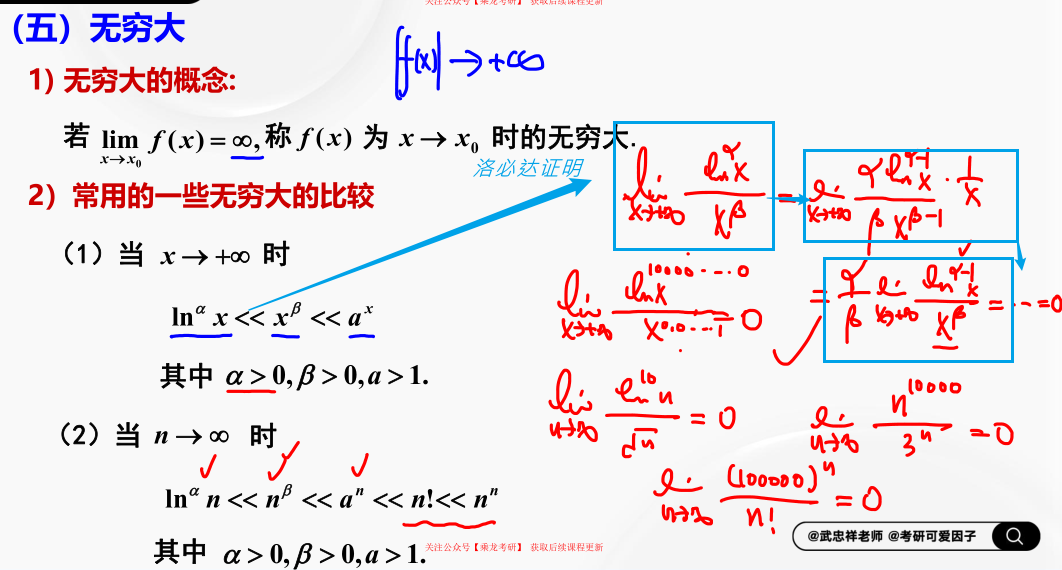 关注公众号【乘龙考研】 获取后续课程更新
（五）无穷大
|f(x)| → +∞
1) 无穷大的概念:
若 lim_{x→x₀} f(x) = ∞, 称 f(x) 为 x → x₀ 时的无穷大.
洛必达证明
2）常用的一些无穷大的比较
（1）当 x → +∞ 时
ln^α x << x^β << a^x
其中 α > 0, β > 0, a > 1.
（2）当 n → ∞ 时
ln^α n << n^β << a^n << n! << n^n
其中 α > 0, β > 0, a > 1.
lim_{x→+∞} ln^α x / x^β = lim_{x→+∞} α ln^{α-1} x · 1/x / β x^{β-1}
= α/β lim_{x→+∞} ln^{α-1} x / x^β = ⋯ = 0
lim_{x→+∞} ln^{10000⋯0} x / x^{0.0⋯1} = 0
lim_{n→∞} ln^{10} n / √n = 0
lim_{n→∞} n^{10000} / 3^n = 0
lim_{n→∞} (100000)^n / n! = 0
@武忠祥老师 @考研可爱因子
关注公众号【乘龙考研】 获取后续课程更新